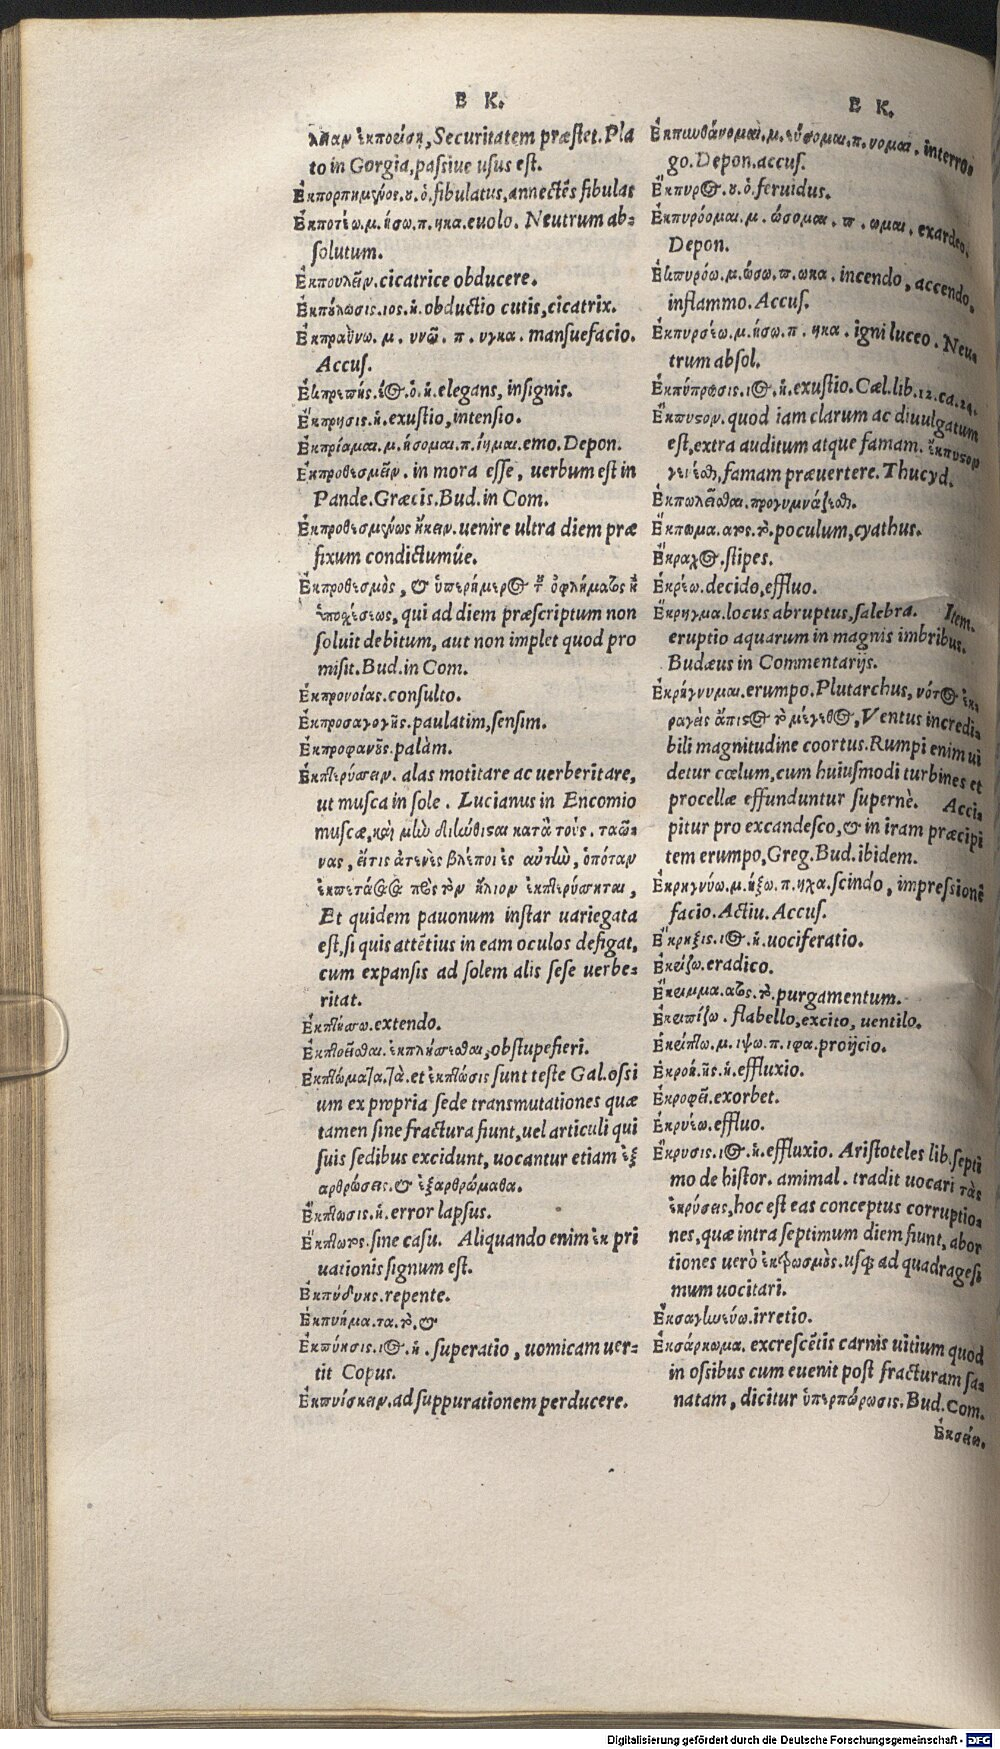 E K.
λειαν ἐκπορίση, Securitatem præstet. Pla
to in Gorgia, paſsiue uſus eſt.
Ἐκπορπημένος. ȣ. ὁ. fibulatus, annectēs fibulat
Ἐκποτέω. μ. ήσω. π. ηκα. euolo. Neutrum ab=
ſolutum.
Ἐκπουλεῖν. cicatrice obducere.
Ἐκπύλωσις. ιος. ἡ. obductio cutis, cicatrix.
Ἐκπραΰνω. μ. υνῶ. π. υγκα. manſuefacio.
Accuſ.
Ἐκπρεπής. έος. ὁ. ἡ. elegans, inſignis.
Ἔκπρησις. ἡ. exuſtio, intenſio.
Ἐκπρίαμαι. μ. ήσομαι. π. ίημαι. emo. Depon.
Ἐκπροθεσμεῖν. in mora eſſe, uerbum eſt in
Pande. Græcis. Bud. in Com.
Ἐκπροθεσμένως ἥκειν. uenire ultra diem præ
fixum condictumúe.
Ἐκπροθεσμὸς, & ὑπερήμερος τοῦ ὀφλήματος ἢ
ὑποχέσεως, qui ad diem præſcriptum non
ſoluit debitum, aut non implet quod pro
miſit. Bud. in Com.
Ἐκπρονοίας. conſulto.
Ἐκπροσαγογῆς. paulatim, ſenſim.
Ἐκπροφανοῦς. palàm.
Ἐκπτερύσσειν. alas motitare ac uerberitare,
ut muſca in ſole. Lucianus in Encomio
muſcæ, καὶ μὴν διηνθισαι κατὰ τοὺς. ταῶ=
νας, εἴτις ἀτενὲς βλέποι ἐς αὐτὴν, ὁπόταν
ἐκπετάσασα πρὸς τὸν ἥλιον ἐκπτερύσσηται,
Et quidem pauonum inſtar uariegata
eſt, ſi quis attētius in eam oculos defigat,
cum expanſis ad ſolem alis ſeſe uerbe=
ritat.
Ἐκπτύσσω. extendo.
Ἐκπτοεῖσθαι. ἐκπλήσσεσθαι, obſtupefieri.
Ἐκπτώματα. τὰ. et ἐκπτώσις ſunt teſte Gal. oſſi
um ex propria ſede transmutationes quæ
tamen ſine fractura fiunt, uel articuli qui
ſuis ſedibus excidunt, uocantur etiam ἐξ
αρθρώσεις. & ἐξαρθρώμαθα.
Ἔκπτωσις. ἡ. error lapſus.
Ἔκπτωτς. ſine caſu. Aliquando enim ἐκ pri
uationis ſignum eſt.
Ἐκπύδυκς. repente.
Ἐκπυήμα. τα. τὸ. &
Ἐκπύησις. ιος. ἡ. ſuperatio, uomicam uer=
tit Copus.
Ἐκπυίσκειν. ad ſuppurationem perducere.
E K.
Ἐκπυνθάνομαι. μ. εύσομαι. π. νομαι. interro=
go. Depon. accuſ.
Ἔκπυρος. ȣ. ὁ. feruidus.
Ἐκπυρόομαι. μ. ώσομαι. π. ωμαι. exardeo.
Depon.
Ἐκπυρόω. μ. ώσω. π. ωκα. incendo, accendo,
inflammo. Accuſ.
Ἐκπυρσέω. μ. ήσω. π. ηκα. igni luceo. Neu=
trum abſol.
Ἐκπύπρωσις. ιος. ἡ. exuſtio. Cæl. lib. 12. ca. 24.
Ἔκπυσον. quod iam clarum ac diuulgatum
eſt, extra auditum atque famam. ἔκπυσον
γενέσθαι, famam præuertere. Thucyd.
Ἐκπωλεῖσθαι. προγυμνάζεσθαι.
Ἔκπωμα. ατς. τὸ. poculum, cyathus.
Ἔκραχος. ſtipes.
Ἐκρέω. decido, effluo.
Ἔκρηγμα. locus abruptus, ſalebra. Item.
eruptio aquarum in magnis imbribus.
Budæus in Commentarijs.
Ἐκρήγνυμαι. erumpo. Plutarchus, νότος ἐκ=
ραγεὶς ἄπιστος τὸ μέγεθος, Ventus incredi=
bili magnitudine coortus. Rumpi enim ui
detur cœlum, cum huiuſmodi turbines et
procellæ effunduntur ſupernè. Acci=
pitur pro excandeſco, & in iram præcipi
tem erumpo, Greg. Bud. ibidem.
Ἐκρηγνύω. μ. ήξω. π. ηχα. ſcindo, impreſsionē
facio. Actiu. Accuſ.
Ἔκρηξις. ιος. ἡ. uociferatio.
Ἐκρίζω. eradico.
Ἔκριμμα. ατος. τὸ. purgamentum.
Ἐκριπίζω. flabello, excito, uentilo.
Ἐκρίπτω. μ. ιψω. π. ιφα. proijcio.
Ἐκροή. ῆς. ἡ. effluxio.
Ἐκροφεῖ. exorbet.
Ἐκρύω. effluo.
Ἔκρυσις. ιος. ἡ. effluxio. Ariſtoteles lib. ſepti
mo de hiſtor. amimal. tradit uocari τὰς
ἐκρύσεις, hoc eſt eas conceptus corruptio=
nes, quæ intra ſeptimum diem fiunt, abor
tiones uerò ἐκτρωσμὸς. uſq; ad quadrageſi
mum uocitari.
Ἐκσαγηνεύω. irretio.
Ἐκσάρκωμα. excreſcētis carnis uitium quod
in oſsibus cum euenit poſt fracturam ſa=
natam, dicitur ὑπερπώρωσις. Bud. Com.
Ἐκσείω.
Digitalisierung gefördert durch die Deutsche Forschungsgemeinschaft - DFG